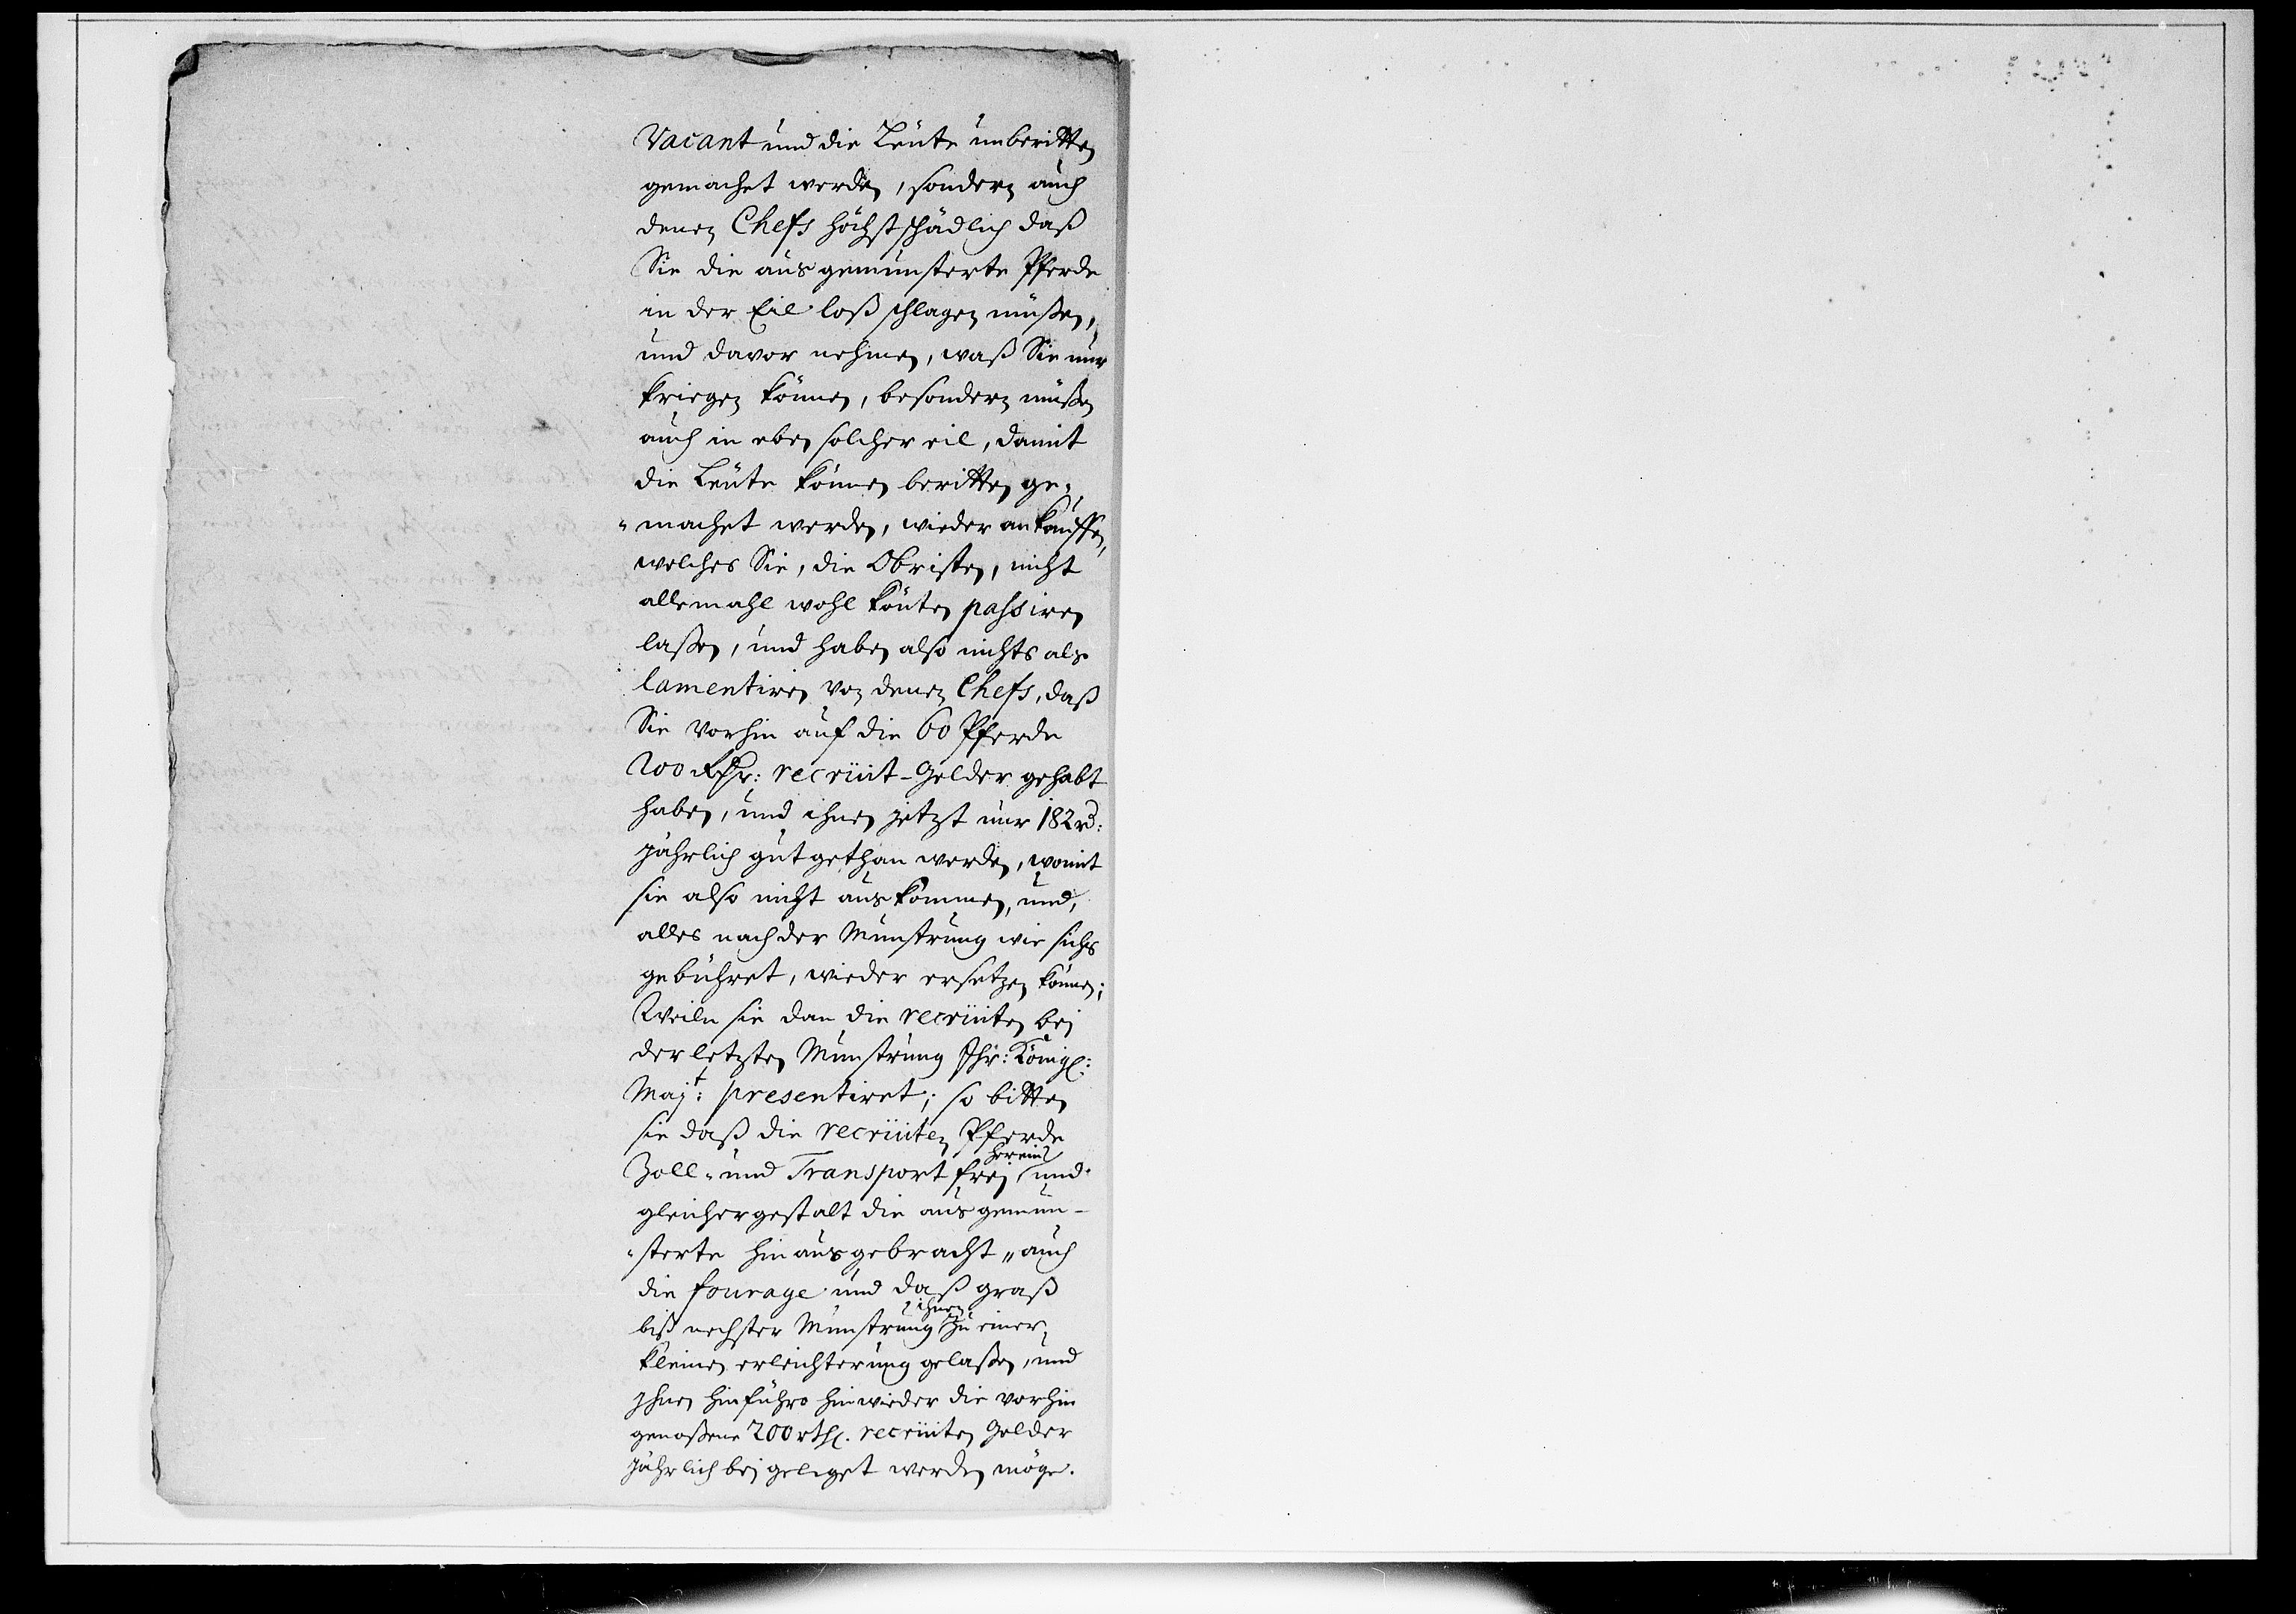 Vacant und die Leüte unberitten
gemachet werden, sondern auch
denen Chefs höchstschädlich daß
Sie die ausgemunsterte Pferde
in der Eil loß schlagen müßen,
und davor nehmen, waß Sie nur
kriegen können, besondern müßen
auch in eben solcher eil, damit
die Leüte können beritten ge-
"machet werden, wieder ankauffen,
welches Sie, die Obristen, nicht
allemahl wohl könten passiren
laßen, und haben also nichts als
lamentiren von denen Chefs, daß
Sie vorhin auf die 60 Pferde
200 Rthr: recruit-Gelder gehabt
haben, und ihnen jetzt nur 182 rd:
jährlich gut gethan werden, womit
sie also nicht auskommen, und,
alles nach der Munstrung wie sichs
gebühret, wieder ersetzen können;
Weiln sie dan die recruiten bei
der letzten Munstrung Ihr: Königl:
Majt: presentiret; so bitten
sie daß die recruiten Pferde
Zoll- und Transport frei herein und
gleichergestalt die ausgemun-
"sterte hinausgebracht, auch
die fourage und daß graß
biß nechster Munstrung ihnen zu einer
kleinen erleichterung gelaßen, und
Ihnen hinführo hinwieder die vorhin
genoßene 200 rthl. recruiten Gelder
jährlich beigeleget werden möge.